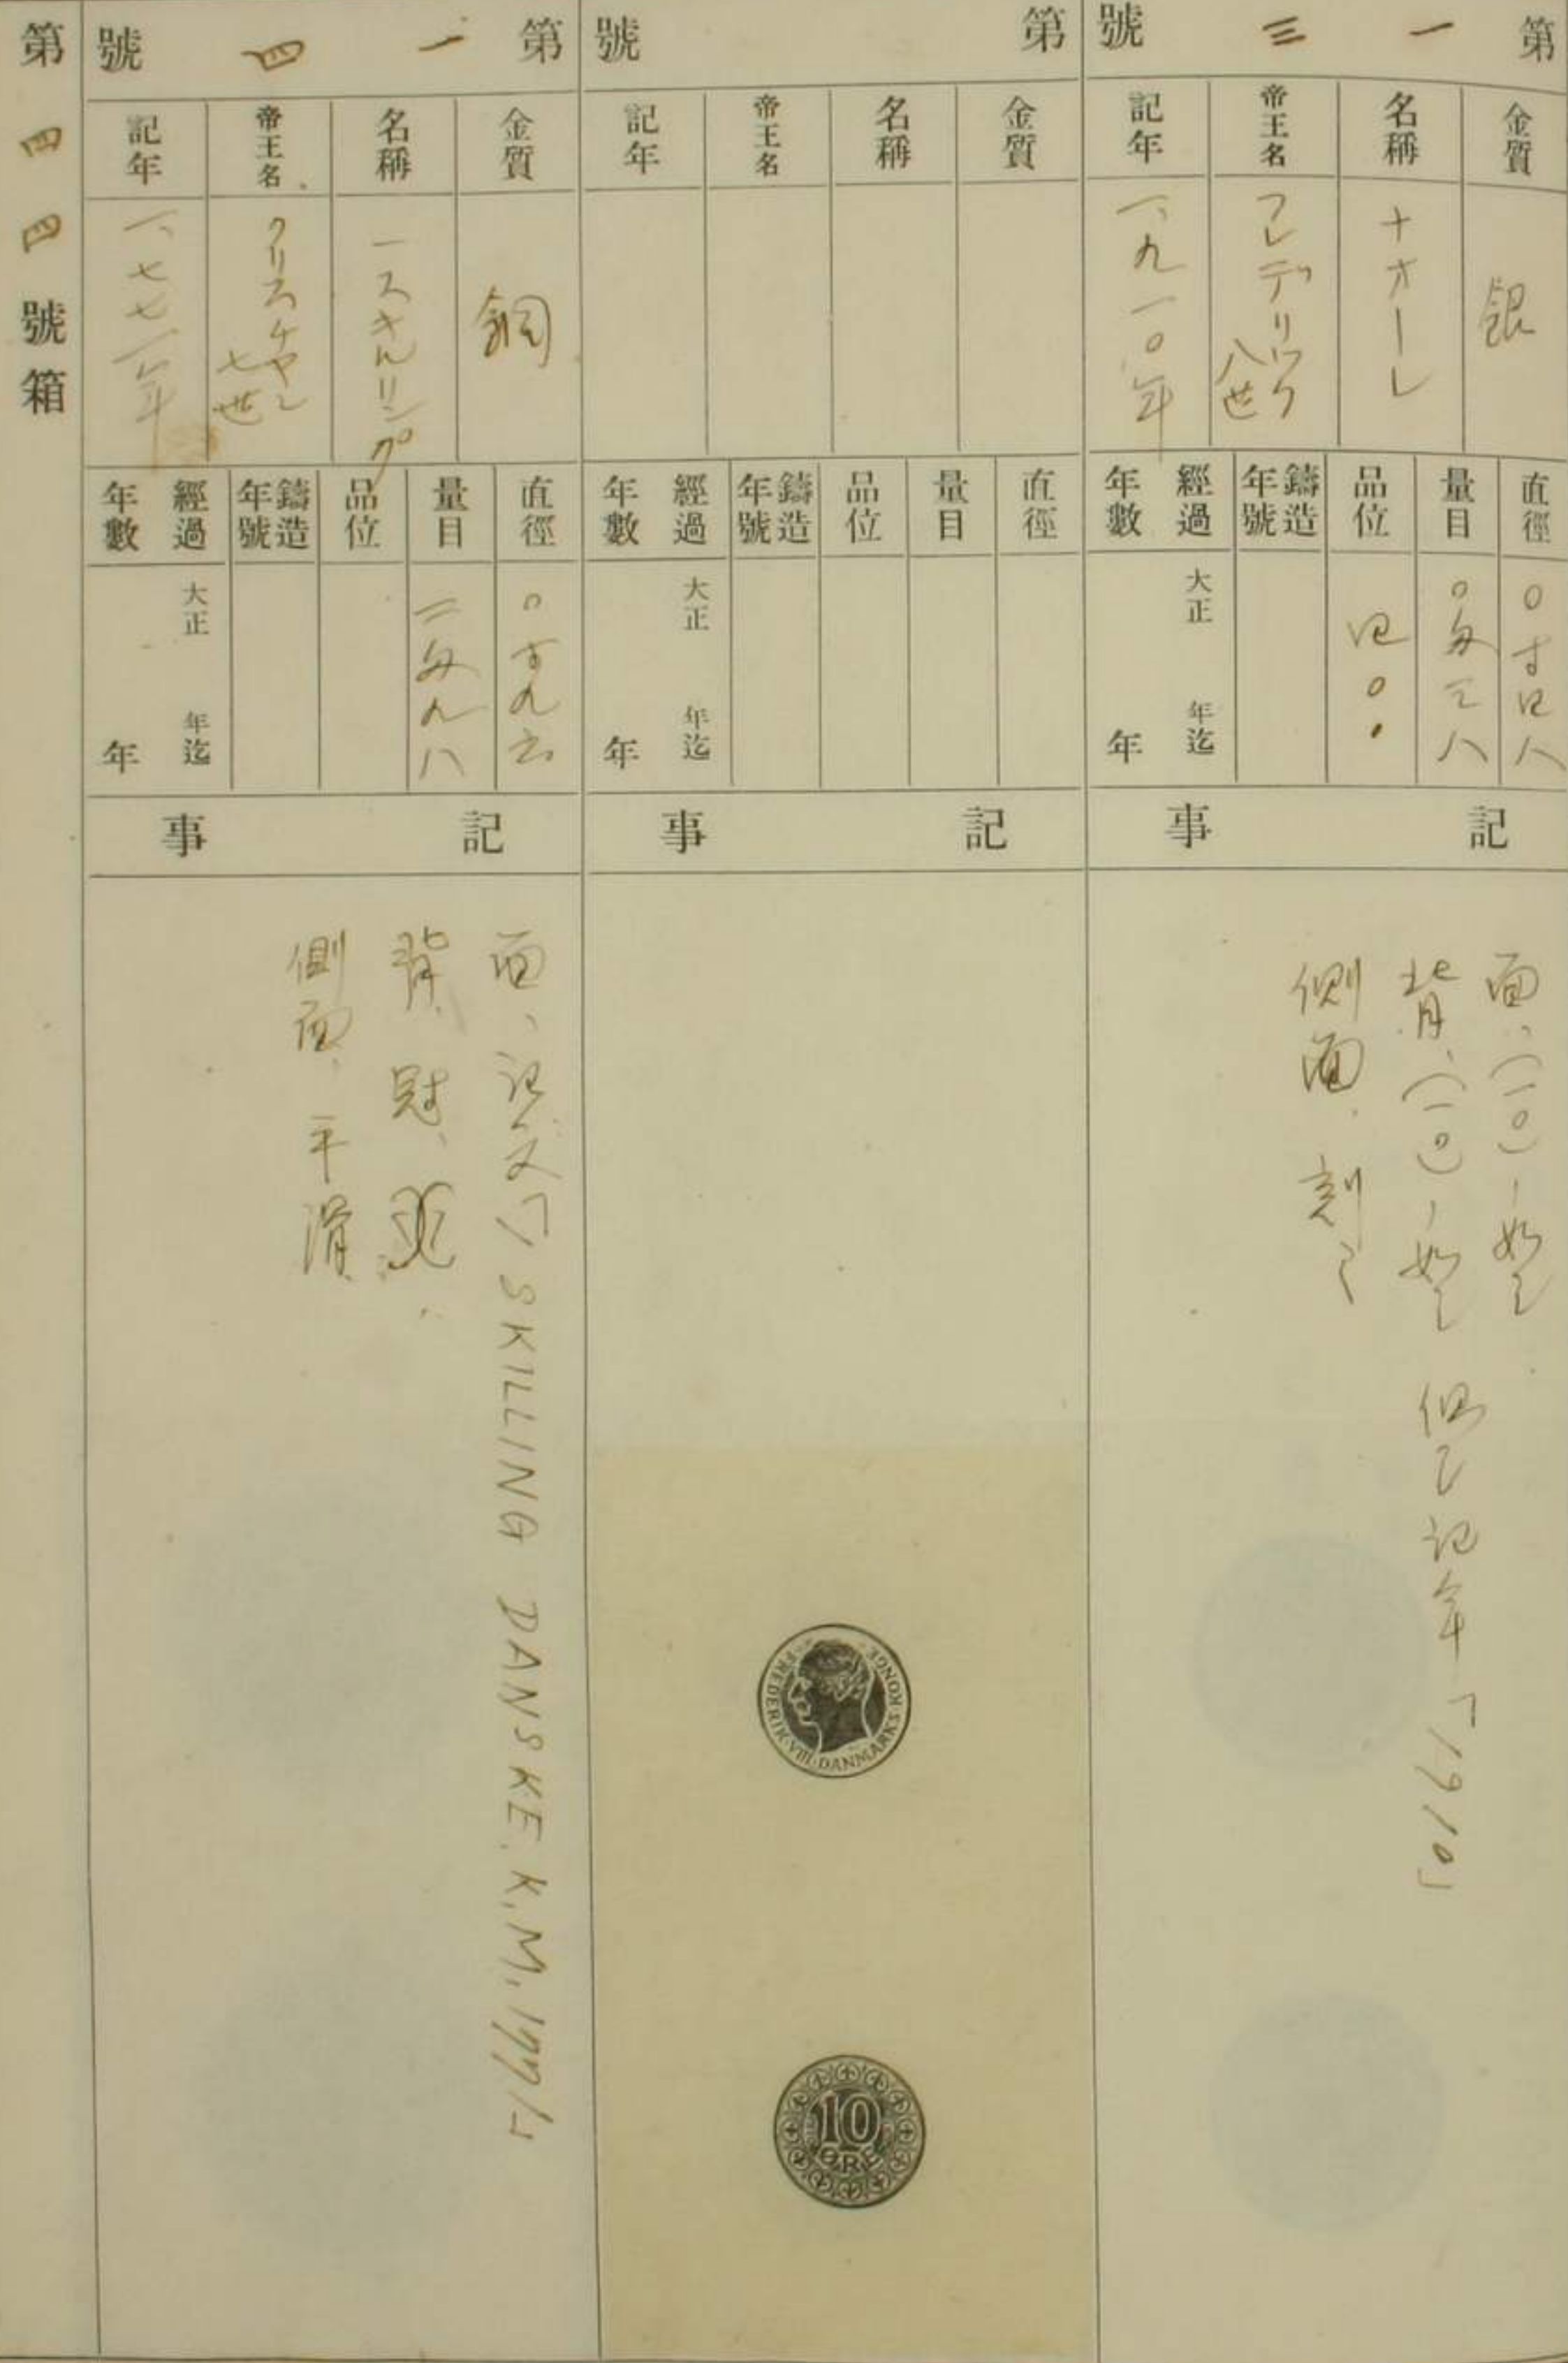 第一三號
金質
銀
名稱
十オーレ
帝王名
フレデリック
八世
記年
一、九一〇年
直徑
〇寸四八
量目
〇匁三八
品位
四〇〇
鑄造年號
經過年數
大正 年迄
年
記事
面、(一〇)ノ如シ
背、(一〇)ノ如シ 但シ記年「1910」
側面、刻ミ
第 號
金質
名稱
帝王名
記年
直徑
量目
品位
鑄造年號
經過年數
大正 年迄
年
記事
FREDERIK·VIII·DANMARKS·KONGE
10
ØRE
第一四號
金質
銅
名稱
一スキルリング
帝王名
クリスチヤン
七世
記年
一、七七一年
直徑
〇寸九六
量目
二匁九八
品位
鑄造年號
經過年數
大正 年迄
年
記事
面、記文「1 SKILLING DANSKE. K. M. 1771」
背、冠、
側面、平滑
第四四號箱